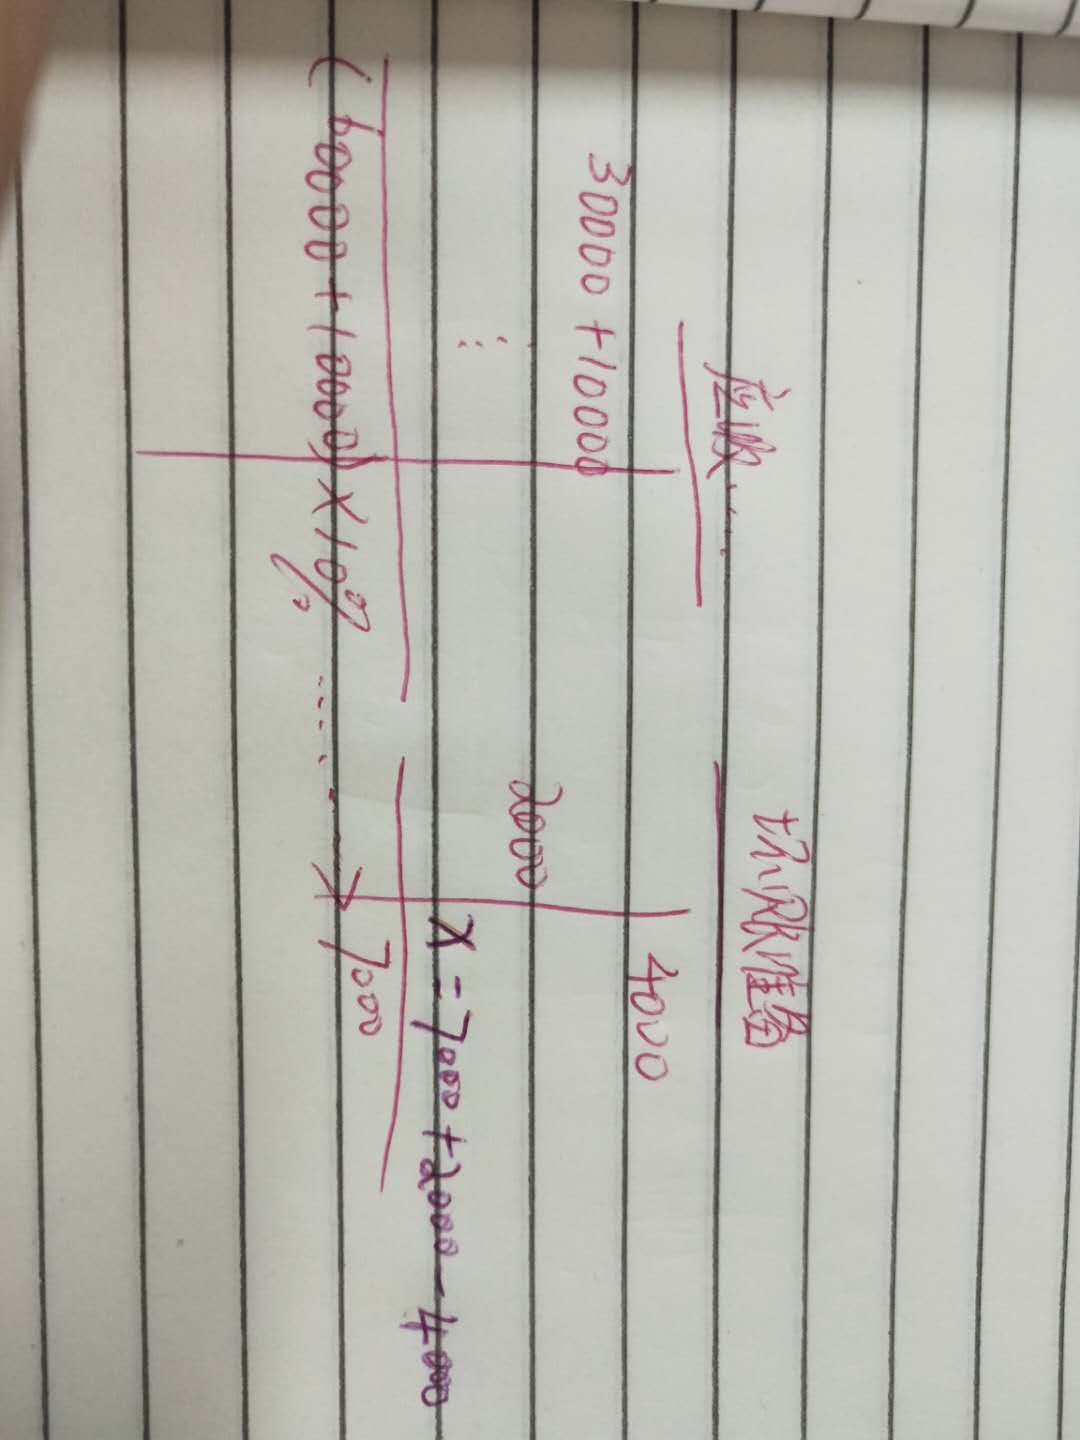 应收……
坏账准备
30000+10000
4000
2000
⋮
x=7000+2000-4000
(60000+10000)×10%
7000